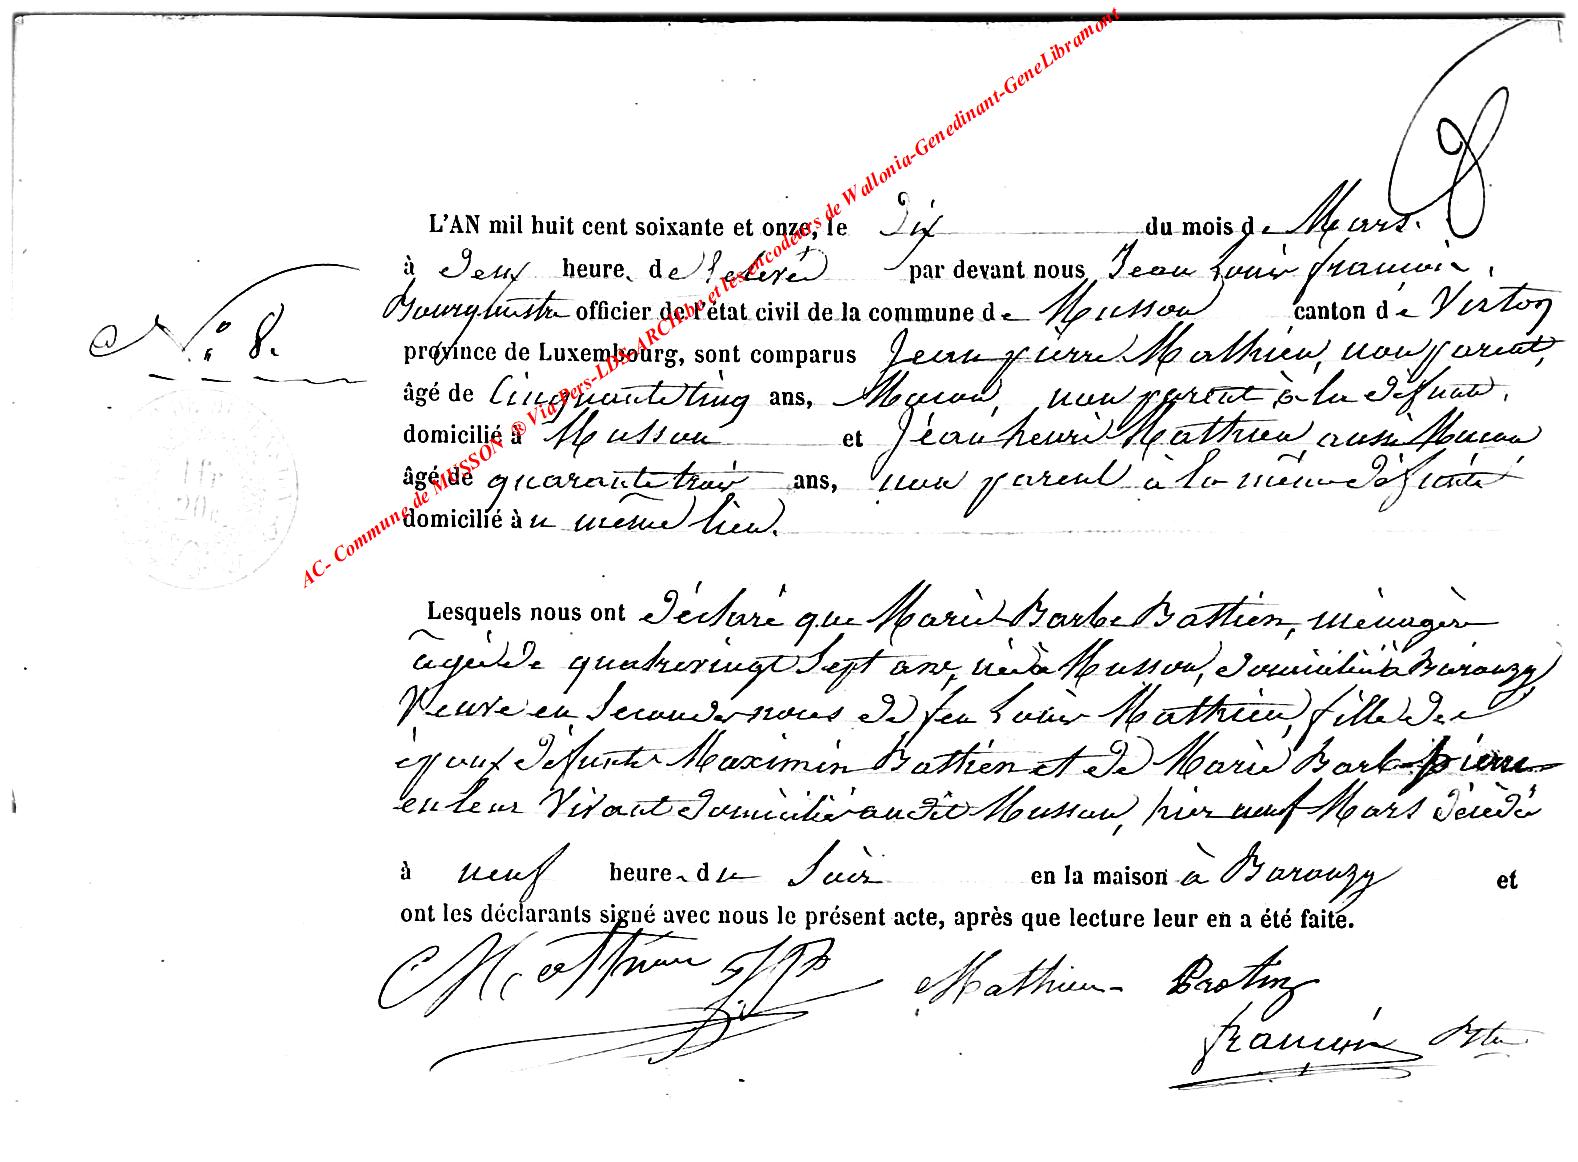 8
L'AN mil huit cent soixante et onze, le Dix du mois de Mars.
à Deux heures de relevée par devant nous Jean Louis françois,
Bourgmestre officier de l'état civil de la commune de Musson canton de Virton
N.° 8.
province de Luxembourg, sont comparus Jean pierre Mathieu, non parent,
âgé de Cinquante cinq ans, Macon, non parent à la défunte,
domicilié à Musson et Jean henri Mathieu, aussi Macon
âgé de quarante trois ans, non parent à la même défunte
domicilié au même lieu.
Lesquels nous ont déclaré que Marie Barbe Battien, ménagère
âgée de quatre vingt sept ans, née à Musson, domiciliée à Baranzy
Veuve en secondes noces de feu Louis Mathieu, fille des
époux défunts Maximin Battien et de Marie Barbe pierre
en leur vivant domiciliés audit Musson, hier neuf Mars décédée
à neuf heures du soir en la maison à Baranzy et
ont les déclarants signé avec nous le présent acte, après que lecture leur en a été faite.
Mathieu JP Mathieu
françois
AC- Commune de MUSSON ® Via Pers-LDS-ARCH.be et les encodeurs de Wallonia-Genedinant-GeneLibramont